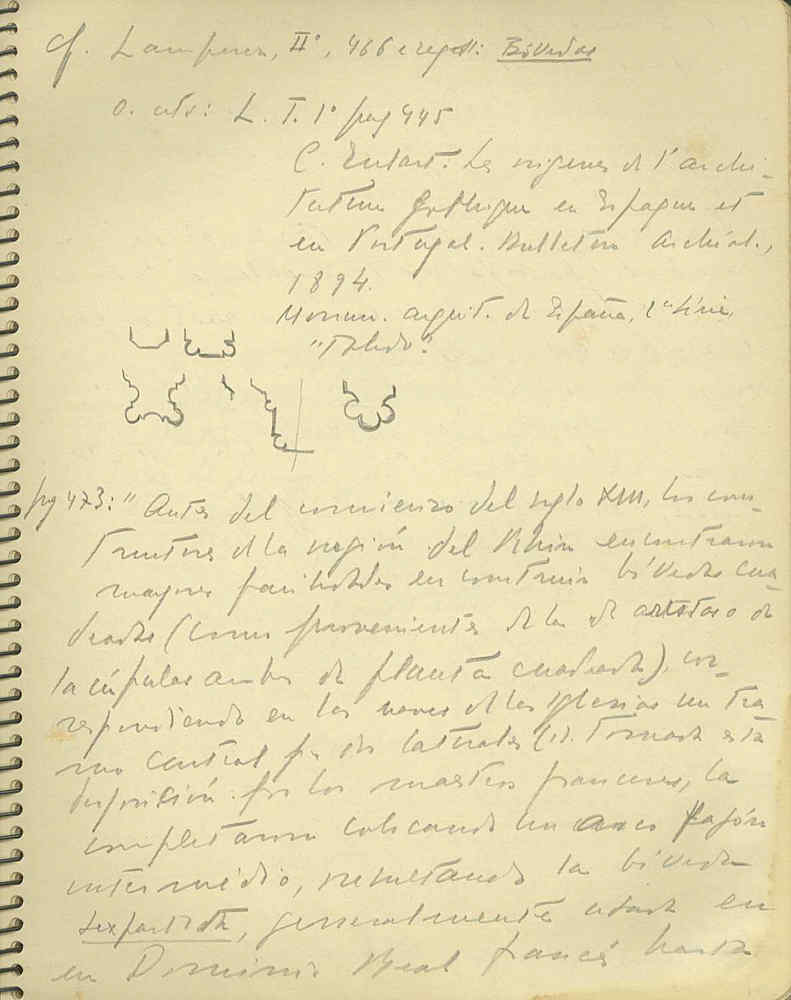 cf. Lamperez, IIº, 466 e segtt: Bóvedas
o. cts: L. T. 1º pag 445
C. Enlart. Les origenes de l'archi-
tecture gothique en Espagne et
en Portugal. Bulletin Archéol.,
1894.
Monum. arquit. de España, 1ª série,
"Toledo".
pg 473: "Antes del comienzo del siglo XIII, los cons-
tructores de la región del Rhin encontraron
mayores facilidades en construir bóvedas cua-
dradas (como provenientes de la de arista o de
la cúpula ambas de planta cuadrada), cor-
respondiendo en las naves de las iglesias un tra
mo central por dos laterales (1). Tomada esta
disposición por los maestros franceses, la
completaron colocando un arco fajón
intermédio, resultando la bóveda
sexpartita, generalmente usada en
en Dominio Real francés hasta